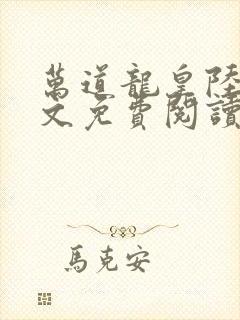 萬道龍皇陸
文免費閱讀
馬克安